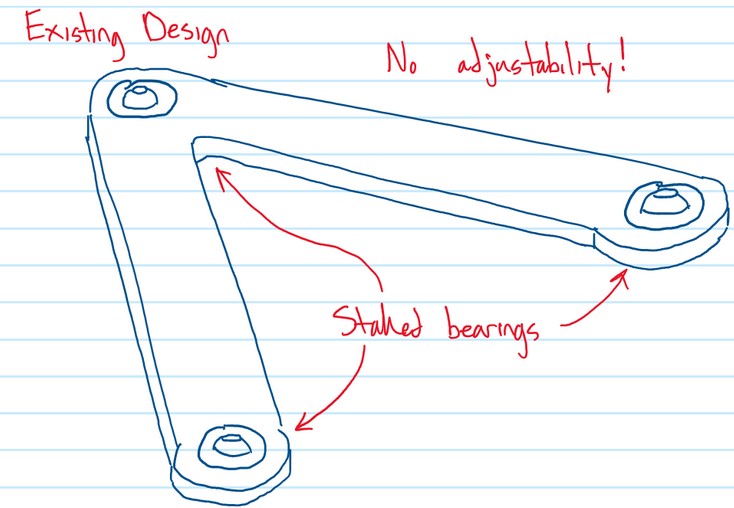 Existing Design
No adjustability!
Staked bearings